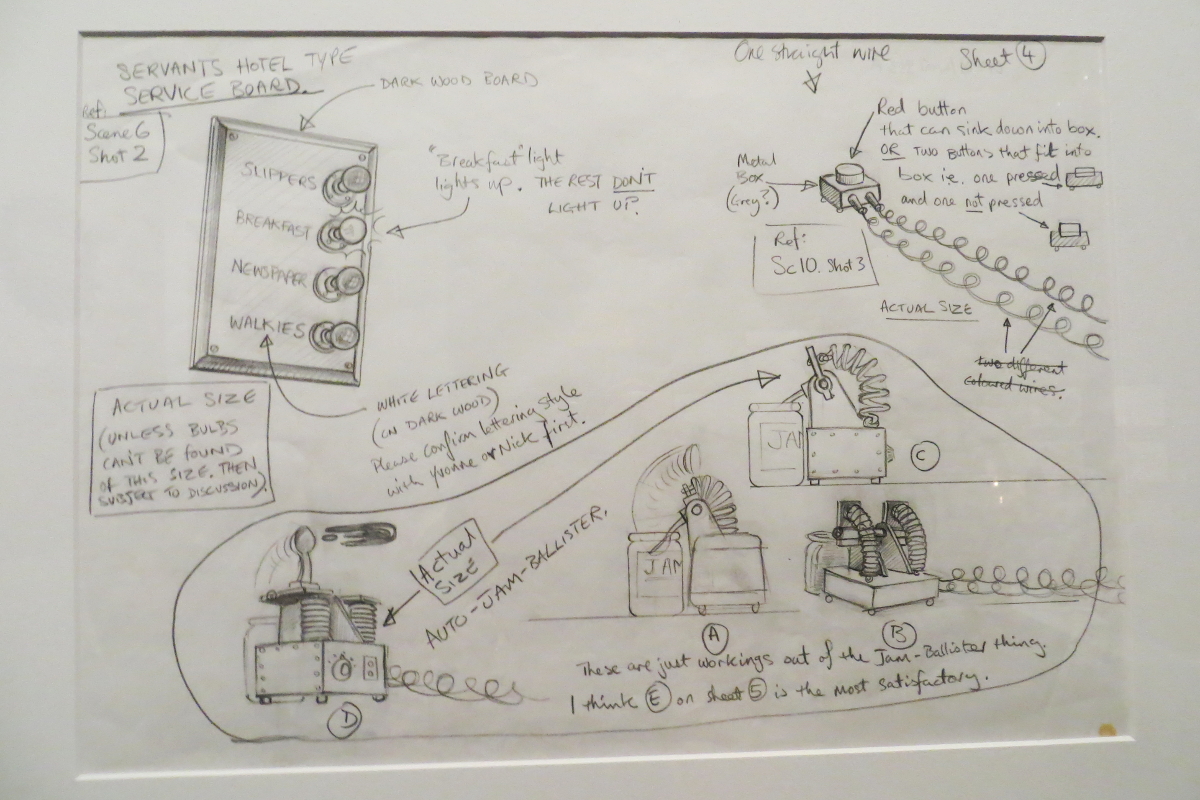 SERVANTS HOTEL TYPE
SERVICE BOARD.
Ref:
Scene 6
Shot 2
DARK WOOD BOARD
SLIPPERS
BREAKFAST
NEWSPAPER
WALKIES
"Breakfast" light
lights up. THE REST DON'T
LIGHT UP.
One straight wire
Sheet 4
Red button
that can sink down into box.
OR TWO Buttons that fit into
box i.e. one pressed
and one not pressed
Metal
Box
(Grey?)
Ref:
Sc10. Shot 3
ACTUAL SIZE
two different
coloured wires.
ACTUAL SIZE
(UNLESS BULBS
CAN'T BE FOUND
OF THIS SIZE. THEN
SUBJECT TO DISCUSSION).
WHITE LETTERING
(ON DARK WOOD)
Please confirm lettering style
with Yvonne or Nick first.
Actual
SIZE
AUTO-JAM-BALLISTER.
JAM
C
JAM
A
B
D
These are just workings out of the Jam-Ballister thing.
I think E on sheet 5 is the most satisfactory.